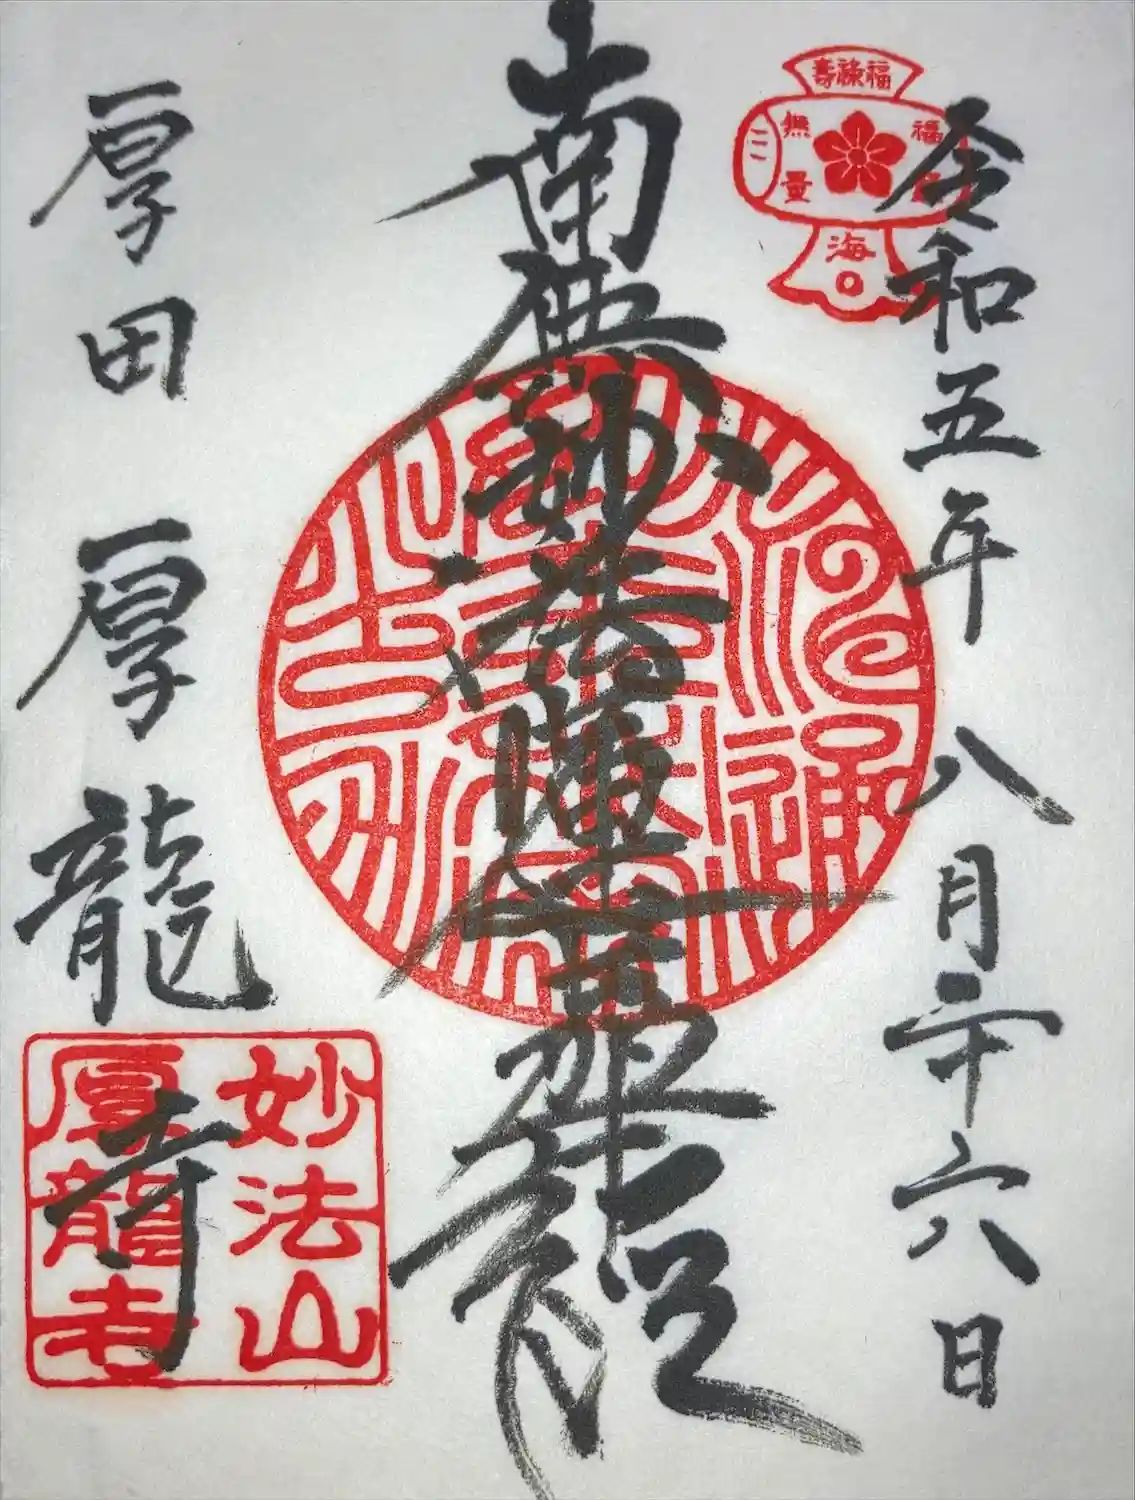 令和五年八月二十六日
福禄壽
福
無量
海
南無妙法蓮華経
厚田厚龍寺
妙法山
厚龍寺